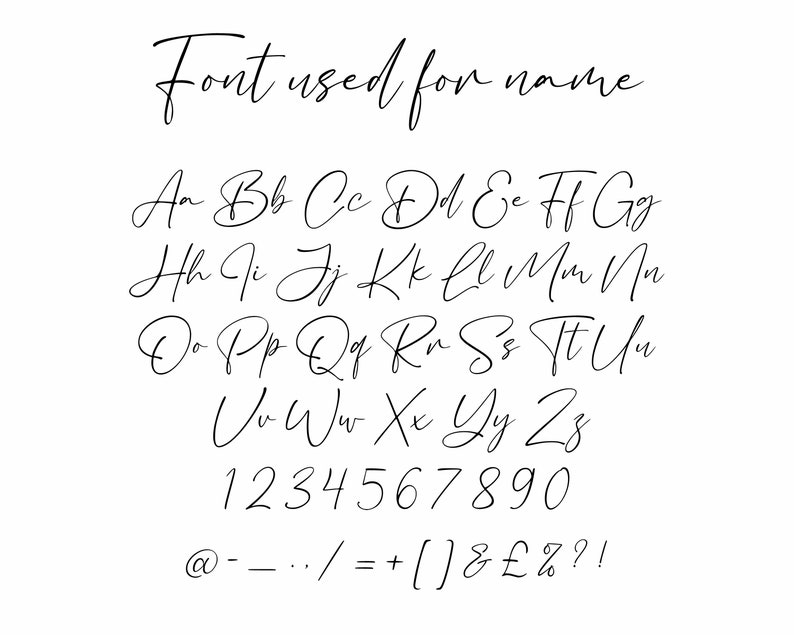 Font used for name
Aa Bb Cc Dd Ee Ff Gg
Hh Ii Jj Kk Ll Mm Nn
Oo Pp Qq Rr Ss Tt Uu
Vv Ww Xx Yy Zz
1 2 3 4 5 6 7 8 9 0
@ - _ . , / = + [ ] & £ % ? !